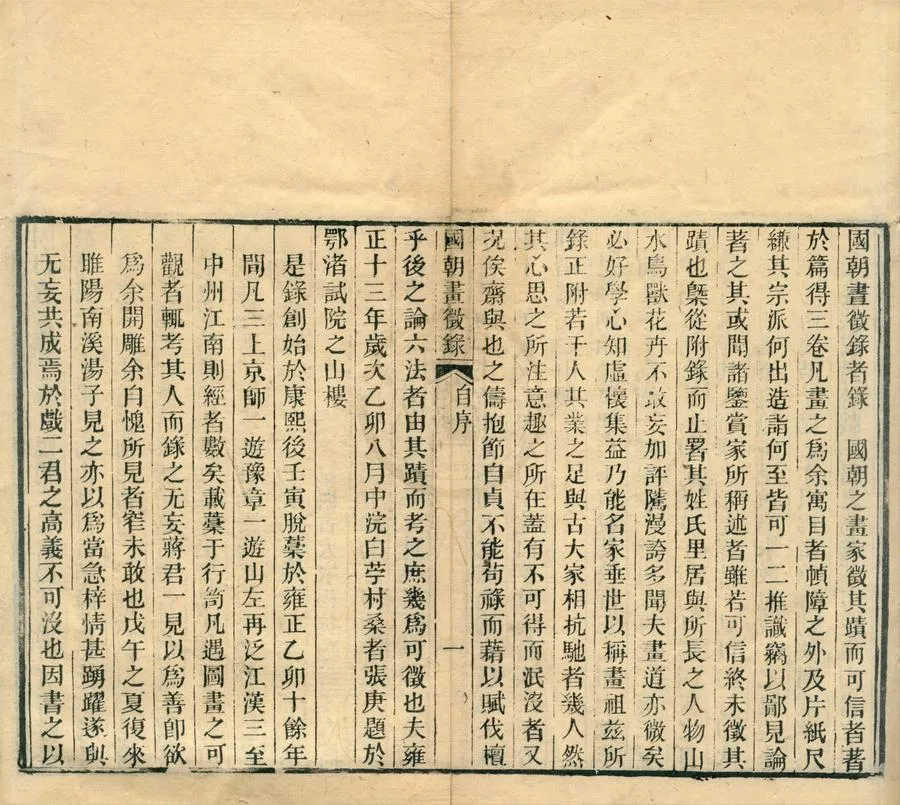 國朝畫徵錄者錄　國朝之畫家徵其蹟而可信者著
於篇得三卷凡畫之爲余寓目者幀障之外及片紙尺
縑其宗派何出造詣何至皆可一二推識竊以鄙見論
著之其或聞諸鑒賞家所稱述者雖若可信終未徵其
蹟也槩從附錄而止署其姓氏里居與所長之人物山
水鳥獸花卉不敢妄加評騭漫誇多聞夫畫道亦微矣
必好學心知虛懷集益乃能名家垂世以稱畫祖茲所
錄正附若干人其業之足與古大家相抗馳者幾人然
其心思之所注意趣之所在蓋有不可得而泯沒者又
況俟齋與也之儔抱節自貞不能苟祿而藉以賦伐檀
國朝畫徵錄　自序　一
乎後之論六法者由其蹟而考之庶幾爲可徵也夫雍
正十三年歲次乙卯八月中浣白苧村桑者張庚題於
鄂渚試院之山樓
是錄創始於康熙後壬寅脫藁於雍正乙卯十餘年
間凡三上京師一遊豫章一遊山左再泛江漢三至
中州江南則經者數矣載藁于行笥凡遇圖畫之可
觀者輒考其人而錄之无妄蔣君一見以爲善卽欲
爲余開雕余自愧所見者窄未敢也戊午之夏復來
睢陽南溪湯子見之亦以爲當急梓情甚踴躍遂與
无妄共成焉於戲二君之高義不可沒也因書之以